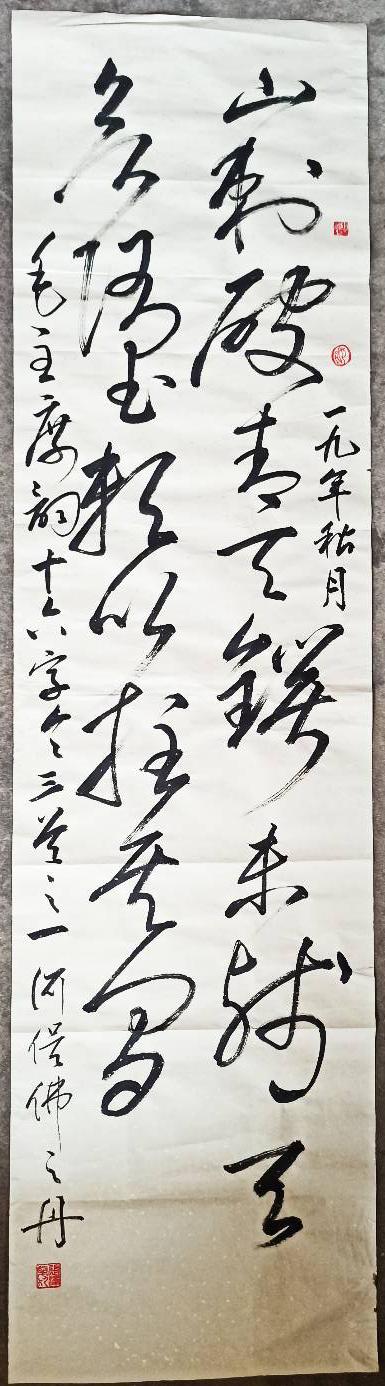 一九年秋月
山刺破青天鍔未残天
欲墮赖以拄其间
毛主席詞十六字令三首之一佛之丹